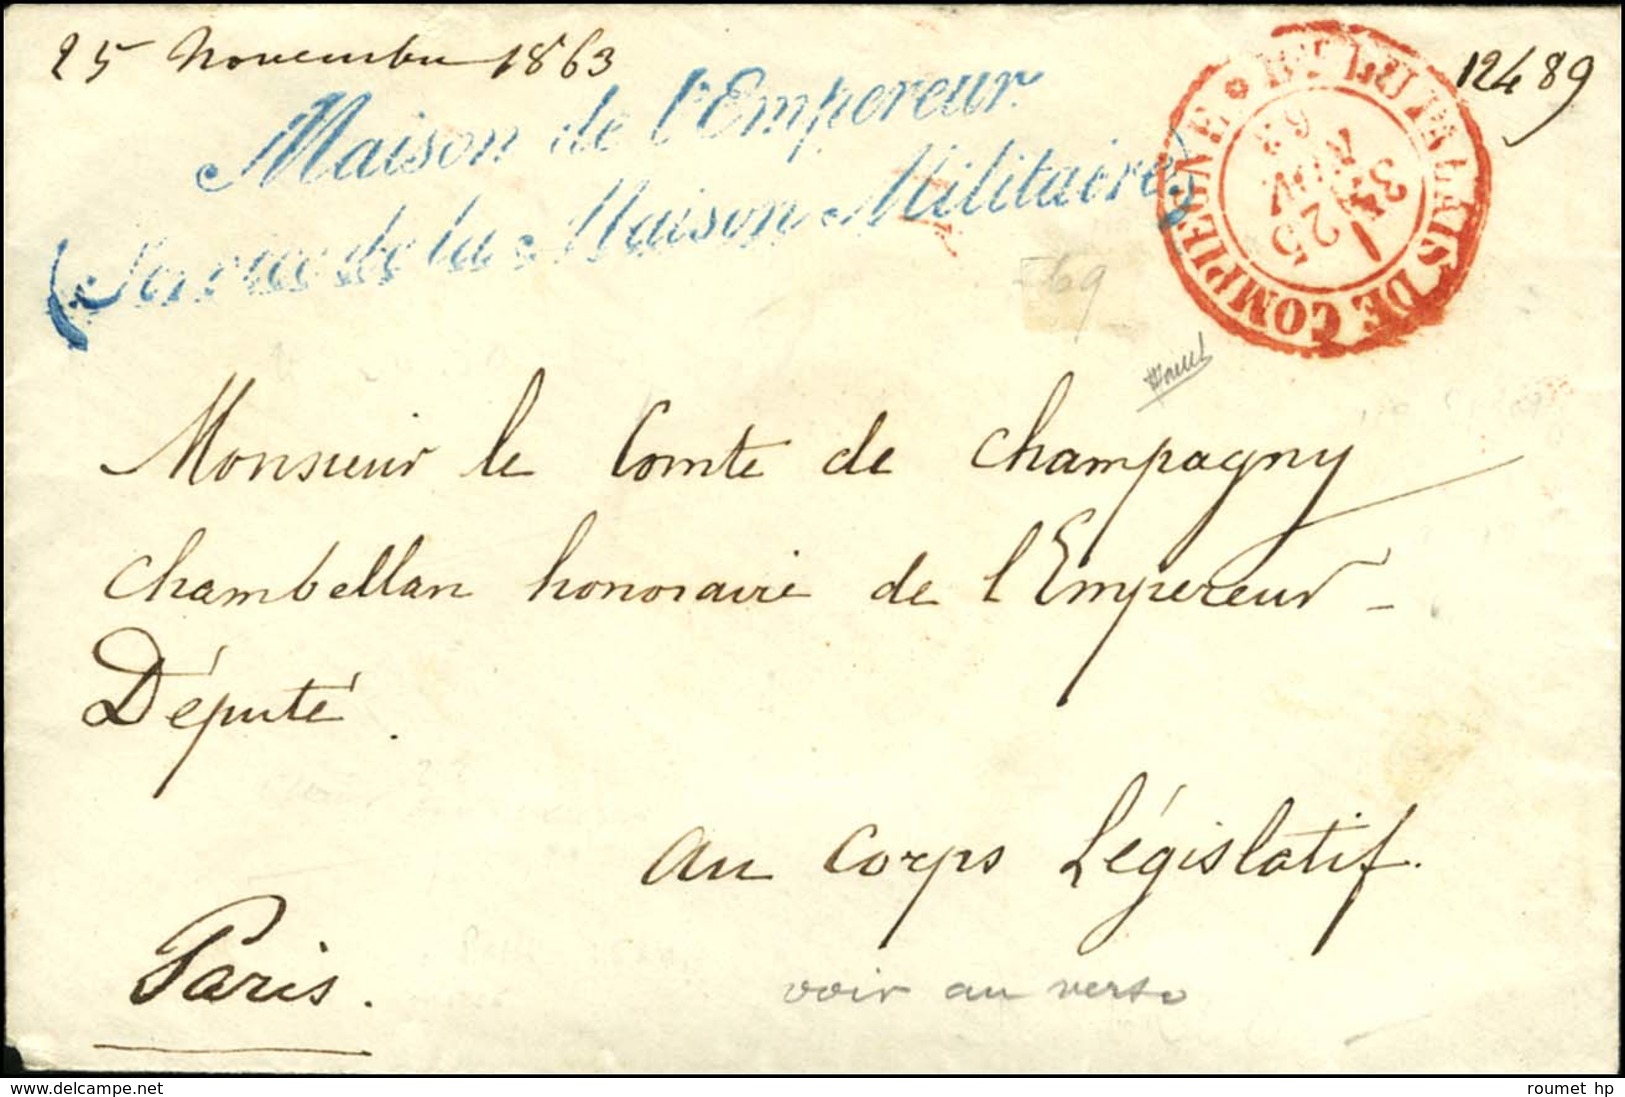 25 Novembre 1863
12489
Maison de l'Empereur
(Service de la Maison Militaire)
BAU DU PALAIS DE COMPIEGNE
3E
25
NOV
63
69
Monsieur le Comte de Champagny
Chambellan honoraire de l'Empereur -
Député.
au Corps Législatif.
Paris.
voir au verso
www.delcampe.net
roumet hp